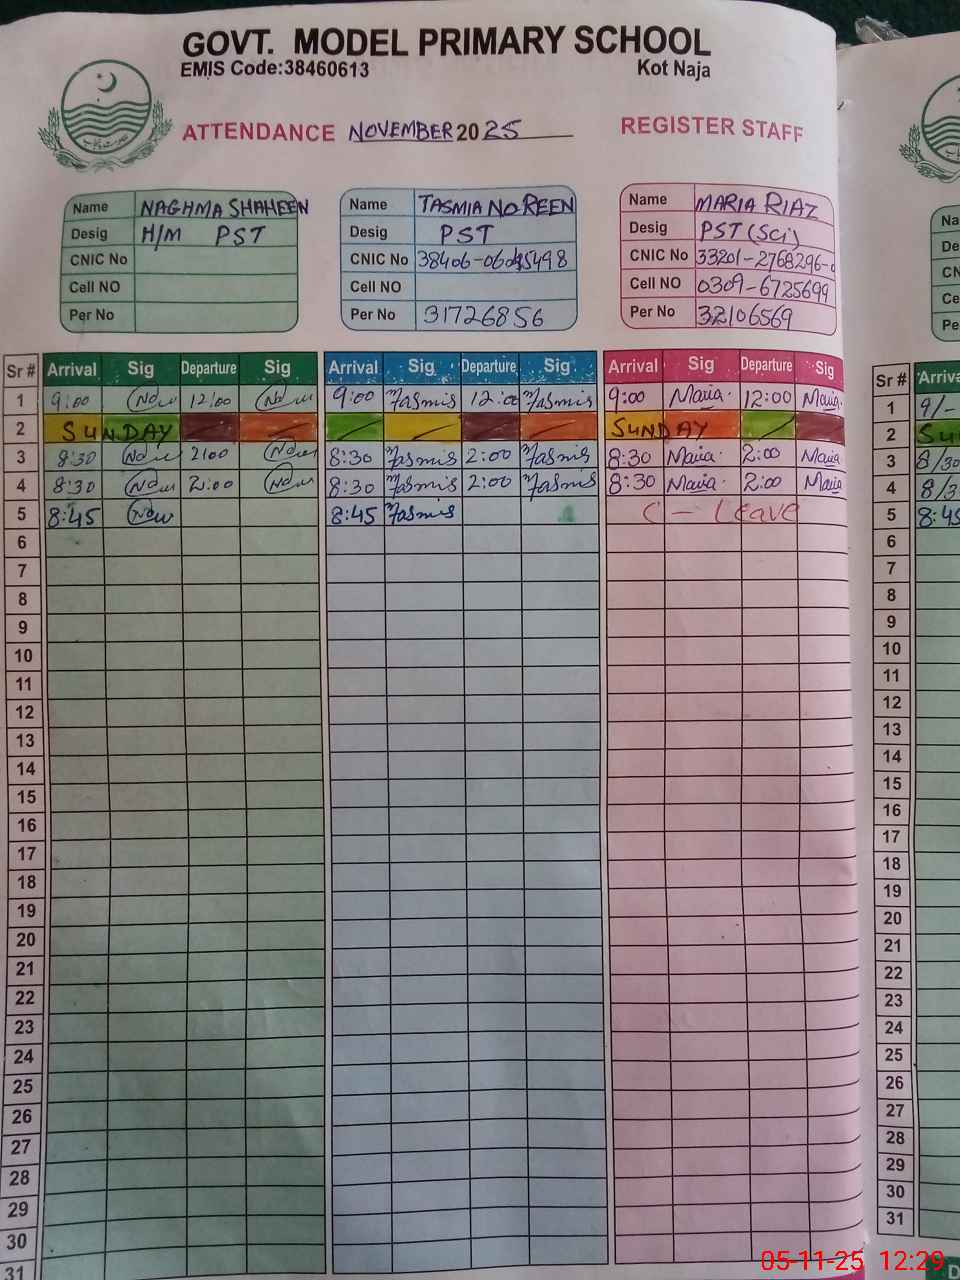 GOVT. MODEL PRIMARY SCHOOL
EMIS Code:38460613 Kot Naja
ATTENDANCE NOVEMBER 2025 REGISTER STAFF
Name NAGHMA SHAHEEN Name TASMIA NOREEN Name MARIA RIAZ
Desig H/M PST Desig PST Desig PST (Sci)
CNIC No CNIC No CNIC No 33201-2768296-
Cell NO Cell NO Cell NO 0309-6725699
Per No Per No 31726856 Per No 32106569
Sr # Arrival Sig Departure Sig Arrival Sig Departure Sig Arrival Sig Departure Sig Sr #
1 9:00 12:00 9:00 Tasmia 12:00 Tasmia 9:00 Maria 12:00 Maria 1 9/-
2 SUNDAY SUNDAY 2
3 8:30 2:00 8:30 Tasmia 2:00 Tasmia 8:30 Maria 2:00 Maria 3 8/30
4 8:30 2:00 8:30 Tasmia 2:00 Tasmia 8:30 Maria 2:00 Maria 4 8/3
5 8:45 8:45 Tasmia C - Leave 5 8:45
6 6
7 7
8 8
9 9
10 10
11 11
12 12
13 13
14 14
15 15
16 16
17 17
18 18
19 19
20 20
21 21
22 22
23 23
24 24
25 25
26 26
27 27
28 28
29 29
30 30
31 31
05-11-25 12:29